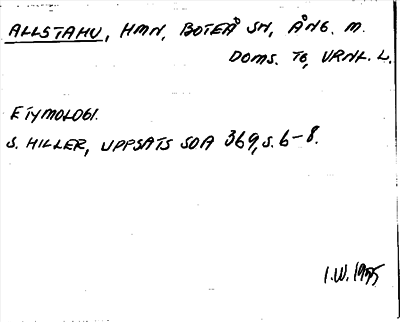 ALLSTAHU, HMN, BOTEÅ SN, ÅNG. M.
DOMS. TG, VRNL. L.
ETYMOLOGI.
S. HILLER, UPPSATS SOA 369, S. 6-8.
I.W. 1975